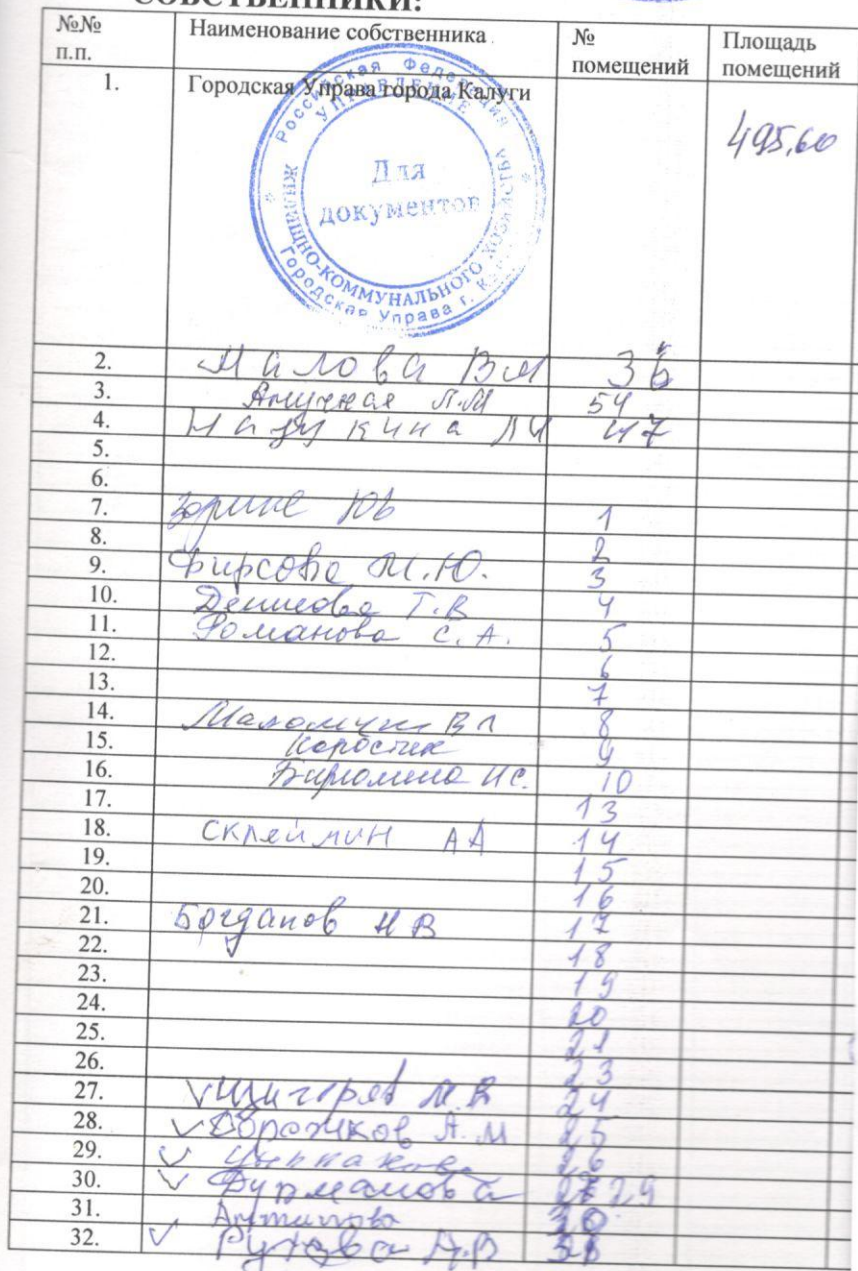 СОБСТВЕННИКИ:
№№ п.п. Наименование собственника № помещений Площадь помещений
1. Городская Управа города Калуги 495,60
Российская Федерация
УПРАВЛЕНИЕ
ЖИЛИЩНО-КОММУНАЛЬНОГО ХОЗЯЙСТВА
Городская Управа г.
Для
документов
2. Малова ВМ 36
3. Л.М 54
4. 47
5.
6.
7. Зорина Юв 1
8. 2
9. Фирсова М.Ю. 3
10. Денисова Т.В 4
11. Романова С.А. 5
12. 6
13. 7
14. В Л 8
15. Коростик 9
16. ИС. 10
17. 13
18. Скляймин АА 14
19. 15
20. 16
21. Богданов НВ 17
22. 18
23. 19
24. 20
25. 21
26. 23
27. V М.В 24
28. V А.М 25
29. V 26
30. V Фурманова 29
31. Антипова 30
32. V А.В